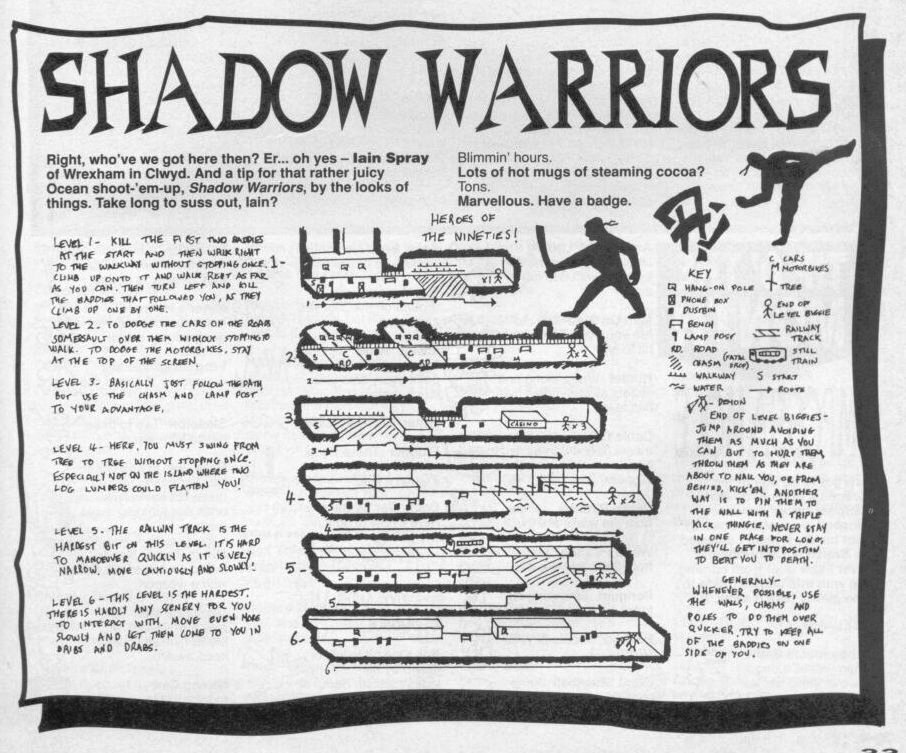 SHADOW WARRIORS
Right, who've we got here then? Er... oh yes – Iain Spray
of Wrexham in Clwyd. And a tip for that rather juicy
Ocean shoot-'em-up, Shadow Warriors, by the looks of
things. Take long to suss out, Iain?
Blimmin' hours.
Lots of hot mugs of steaming cocoa?
Tons.
Marvellous. Have a badge.
LEVEL 1- KILL THE FIRST TWO BADDIES
AT THE START AND THEN WALK RIGHT
TO THE WALKWAY WITHOUT STOPPING ONCE.
CLIMB UP ONTO IT AND WALK RIGHT AS FAR
AS YOU CAN. THEN TURN LEFT AND KILL
THE BADDIES THAT FOLLOWED YOU, AS THEY
CLIMB UP ONE BY ONE.
LEVEL 2. TO DODGE THE CARS ON THE ROADS
SOMERSAULT OVER THEM WITHOUT STOPPING TO
WALK. TO DODGE THE MOTORBIKES, STAY
AT THE TOP OF THE SCREEN.
LEVEL 3- BASICALLY JUST FOLLOW THE PATH
BUT USE THE CHASM AND LAMP POST
TO YOUR ADVANTAGE.
LEVEL 4- HERE, YOU MUST SWING FROM
TREE TO TREE WITHOUT STOPPING ONCE.
ESPECIALLY NOT ON THE ISLAND WHERE TWO
LOG LUMBERS COULD FLATTEN YOU!
LEVEL 5- THE RAILWAY TRACK IS THE
HARDEST BIT ON THIS LEVEL. IT IS HARD
TO MANOEUVER QUICKLY AS IT IS VERY
NARROW. MOVE CAUTIOUSLY AND SLOWLY!
LEVEL 6- THIS LEVEL IS THE HARDEST.
THERE IS HARDLY ANY SCENERY FOR YOU
TO INTERACT WITH. MOVE EVEN MORE
SLOWLY AND LET THEM COME TO YOU IN
DRIBS AND DRABS.
HEROES OF
THE NINETIES!
1-
S
x1
1
2
S C RD C RD M x2
2
3
S CASINO x3
3
4-
S x2
4
5-
S x2
5
6-
S
6
KEY
HANG-ON POLE
PHONE BOX
DUSTBIN
BENCH
LAMP POST
RD. ROAD
CHASM (FATAL DROP)
WALKWAY
WATER
DEMON
C CARS
M MOTORBIKES
TREE
END OF
LEVEL BIGGIE
RAILWAY
TRACK
STILL
TRAIN
S START
ROUTE
END OF LEVEL BIGGIES-
JUMP AROUND AVOIDING
THEM AS MUCH AS YOU
CAN BUT TO HURT THEM,
THROW THEM AS THEY ARE
ABOUT TO NAIL YOU, OR FROM
BEHIND, KICK 'EM. ANOTHER
WAY IS TO PIN THEM TO
THE WALL WITH A TRIPLE
KICK THINGIE. NEVER STAY
IN ONE PLACE FOR LONG,
THEY'LL GET INTO POSITION
TO BEAT YOU TO DEATH.
GENERALLY-
WHENEVER POSSIBLE, USE
THE WALLS, CHASMS AND
POLES TO DO THEM OVER
QUICKER. TRY TO KEEP ALL
OF THE BADDIES ON ONE
SIDE OF YOU.